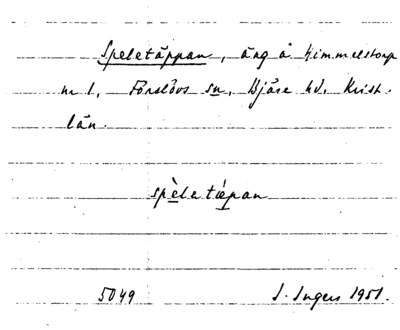 Speletäppan, äng å Himmelstorp
nr 1, Förslövs sn, Bjäre hd. Krist.
län.
spèletæpan
5049 I. Ingers 1951.